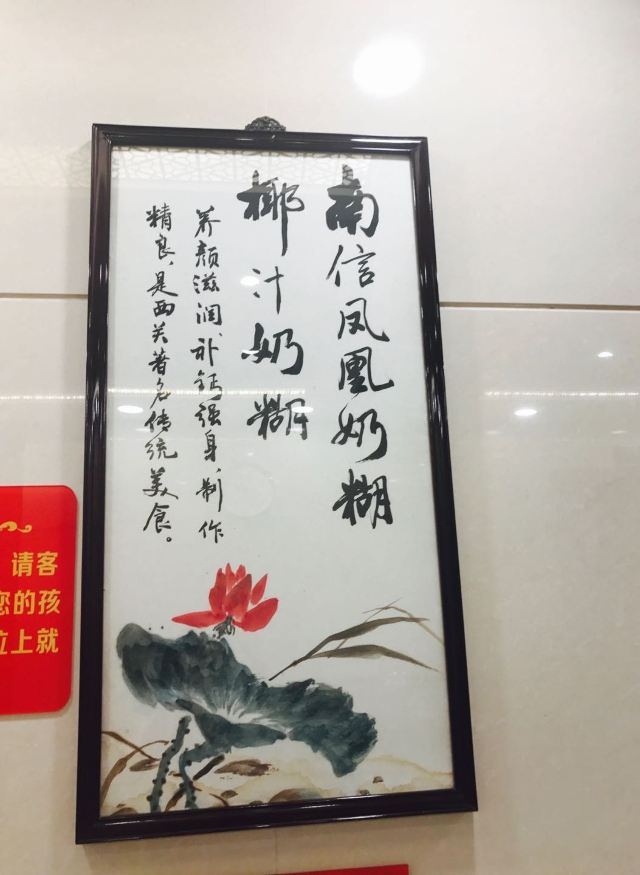 南信凤凰奶糊
椰汁奶糊
养颜滋润、补钙强身,制作
精良,是西关著名传统美食。
请客
您的孩
位上就